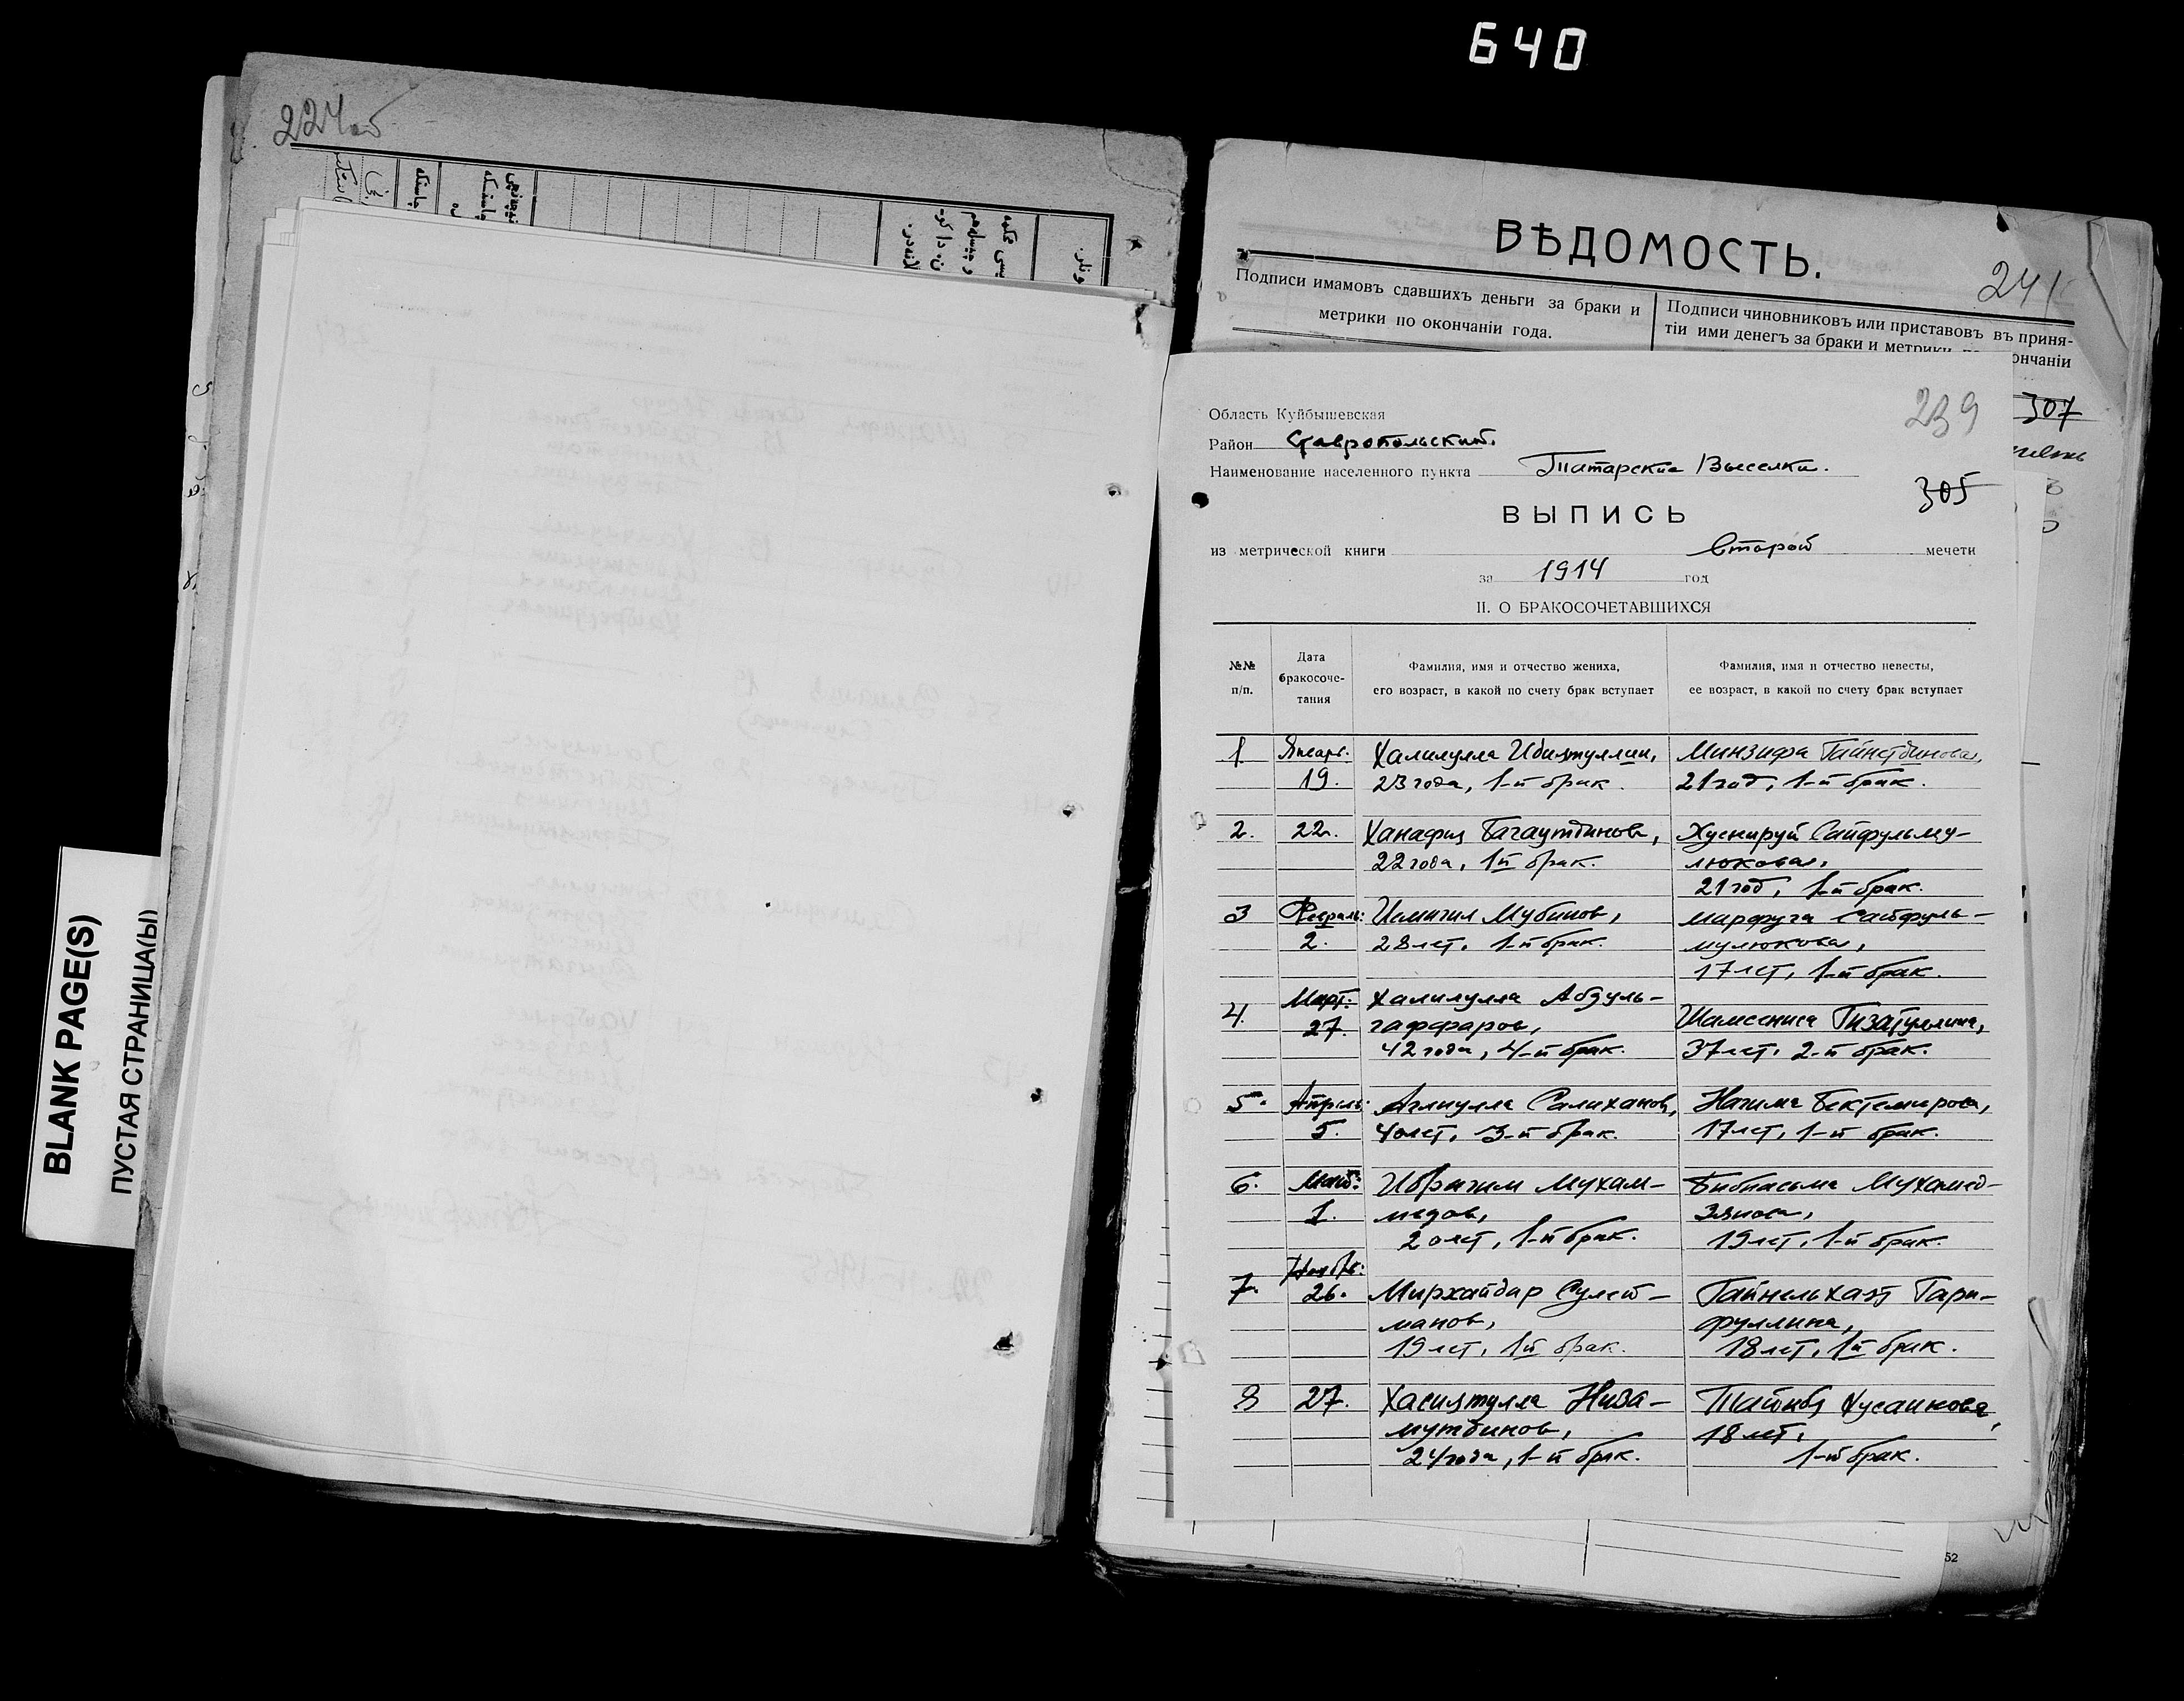 640
224об
BLANK PAGE(S)
ПУСТАЯ СТРАНИЦА(Ы)
ВѢДОМОСТЬ.
241
Подписи имамовъ сдавшихъ деньги за браки и
метрики по окончаніи года.
Подписи чиновниковъ или приставовъ въ приня-
тіи ими денегъ за браки и метрики
ончаніи
307
239
Область Куйбышевская
Район Ставропольский.
Наименование населенного пункта Татарские Выселки.
305
ВЫПИСЬ
из метрической книги Второй мечети
за 1914 год
II. О БРАКОСОЧЕТАВШИХСЯ
№№
п/п.
Дата
бракосоче-
тания
Фамилия, имя и отчество жениха,
его возраст, в какой по счету брак вступает
Фамилия, имя и отчество невесты,
ее возраст, в какой по счету брак вступает
1 Январь: Халилулла Ибятуллин, Минзифа Гайнетдинова,
19. 23 года, 1-й брак. 21 год, 1-й брак.
2. 22. Ханафия Багаутдинов, Хуснируй Сайфульму-
22 года, 1й брак. люкова,
21 год, 1-й брак.
3 Февраль: Исмагил Мубинов, Марфуга Сайфуль-
2. 28 лет, 1-й брак. мулюкова,
17 лет, 1-й брак.
Март: Халилулла Абдуль-
4. 27. гаффаров, Шамсениса Гизатуллина,
42 года, 4-й брак. 37 лет, 2-й брак.
5. Апрель: Аглиулла Салиханов, Нагима Бектемирова,
5. 40 лет, 3-й брак. 17 лет, 1-й брак.
6. Май: Ибрагим Мухам- Бибиасьма Мухамед-
1. медов, зянова,
20 лет, 1-й брак. 19 лет, 1-й брак.
Ноябрь:
7. 26. Мирхайдар Сулей- Гайнельхаят Гари-
манов, фуллина,
19 лет, 1й брак. 18 лет, 1й брак.
8 27. Хасиятулла Низа- Тайиба Хусаинова,
мутдинов, 18 лет,
24 года, 1-й брак. 1-й брак.
52